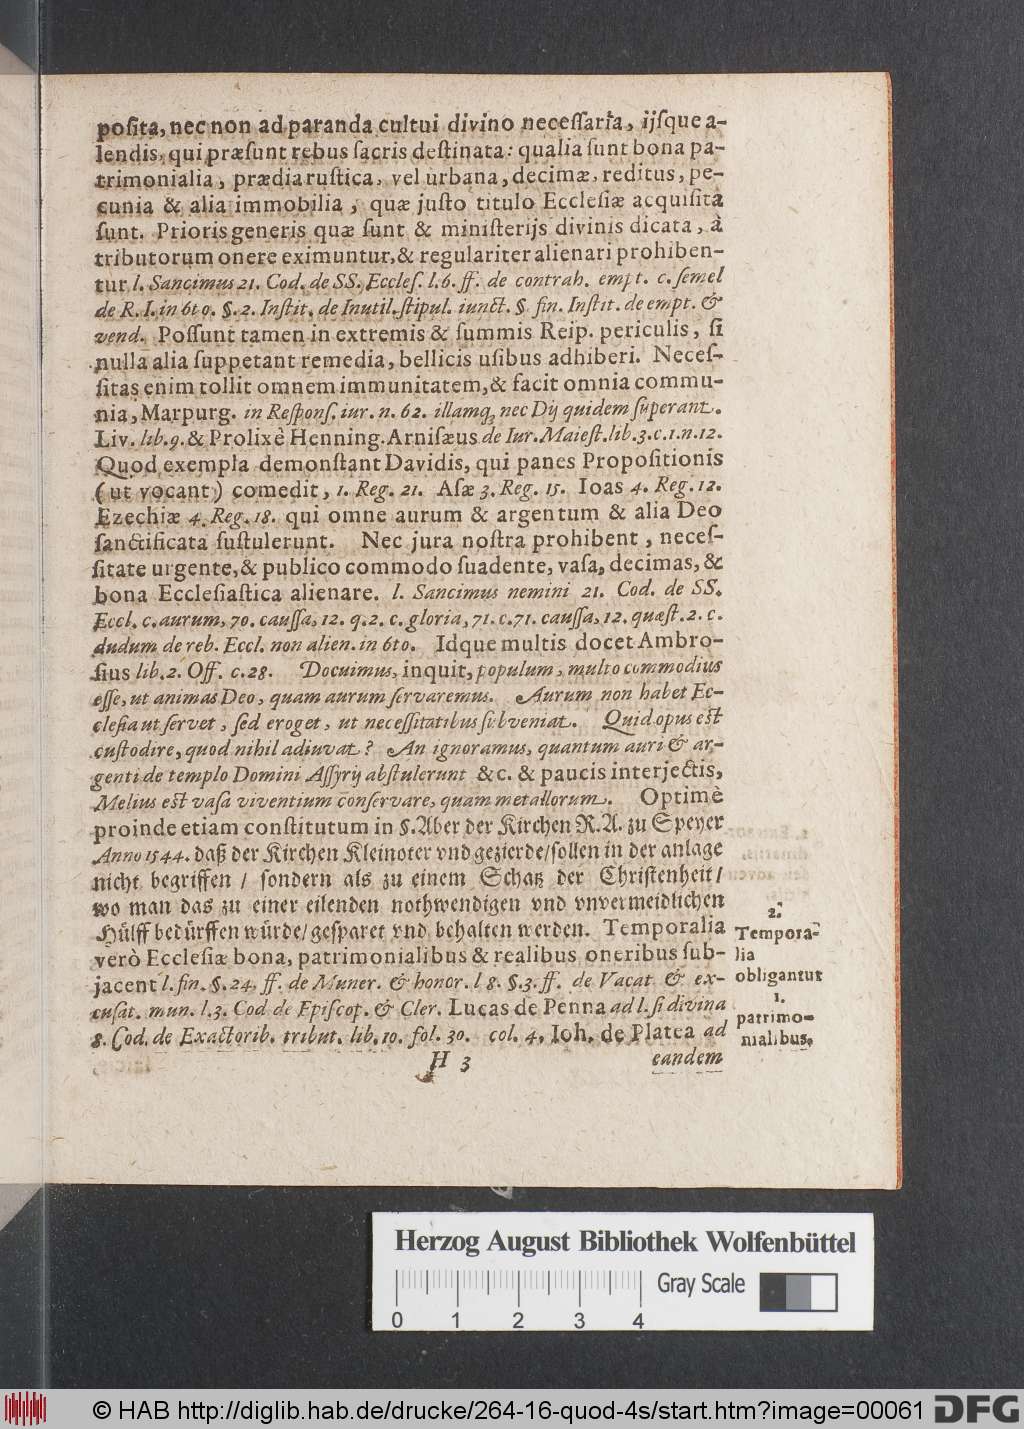 poſita, nec non ad paranda cultui divino neceſſaria, ijſque a-
lendis, qui præſunt rebus ſacris deſtinata: qualia ſunt bona pa-
trimonialia, prædia ruſtica, vel urbana, decimæ, reditus, pe-
cunia & alia immobilia, quæ juſto titulo Eccleſiæ acquiſita
ſunt. Prioris generis quæ ſunt & miniſterijs divinis dicata, à
tributorum onere eximuntur, & regulariter alienari prohiben-
tur l. Sancimus 21. Cod. de SS. Eccleſ. l. 6. ff. de contrah. empt. c. ſemel
de R. I. in 6to. §. 2. Inſtit. de Inutil. ſtipul. iunct. § fin. Inſtit. de empt. &
vend. Poſſunt tamen in extremis & ſummis Reip. periculis, ſi
nulla alia ſuppetant remedia, bellicis uſibus adhiberi. Neceſ-
ſitas enim tollit omnem immunitatem, & facit omnia commu-
nia, Marpurg. in Reſponſ. iur. n. 62. illamq; nec Dij quidem ſuperant.
Liv. lib. 9. & Prolixè Henning. Arniſæus de Iur. Maieſt. lib. 3. c. 1. n. 12.
Quod exempla demonſtant Davidis, qui panes Propoſitionis
(ut vocant) comedit, 1. Reg. 21. Aſæ 3. Reg. 15. Ioas 4. Reg. 12.
Ezechiæ 4. Reg. 18. qui omne aurum & argentum & alia Deo
ſanctificata ſuſtulerunt. Nec jura noſtra prohibent, neceſ-
ſitate urgente, & publico commodo ſuadente, vaſa, decimas, &
bona Eccleſiaſtica alienare. l. Sancimus nemini 21. Cod. de SS.
Eccl. c. aurum, 70. cauſſa, 12. q. 2. c. gloria, 71. c. 71. cauſſa, 12. quæſt. 2. c.
dudum de reb. Eccl. non alien. in 6to. Idque multis docet Ambro-
ſius lib. 2. Off. c. 28. Docuimus, inquit, populum, multo commodius
eſſe, ut animas Deo, quam aurum ſervaremus. Aurum non habet Ec-
cleſia ut ſervet, ſed eroget, ut neceſſitatibus ſubveniat. Quid opus eſt
cuſtodire, quod nihil adiuvat? An ignoramus, quantum auri & ar-
genti de templo Domini Aſſyrij abſtulerunt &c. & paucis interjectis,
Melius eſt vaſa viventium conſervare, quam metallorum. Optimè
proinde etiam conſtitutum in §. Aber der Kirchen R. A. zu Speyer
Anno 1544. daß der Kirchen Kleinoter vnd gezierde/ſollen in der anlage
nicht begriffen / ſondern als zu einem Schatz der Chriſtenheit/
wo man das zu einer eilenden nothwendigen vnd vnvermeidlichen
Hülff bedürffen würde/geſparet vnd behalten werden. Temporalia
verò Eccleſiæ bona, patrimonialibus & realibus oneribus ſub-
jacent l. fin. §. 24. ff. de Muner. & honor. l 8. §. 3. ff. de Vacat & ex-
cuſat. mun. l. 3. Cod de Epiſcop. & Cler. Lucas de Penna ad l. ſi divina
8. Cod. de Exactorib. tribut. lib. 10. fol. 30. col. 4. Ioh. de Platea ad
2.
Tempora-
lia
obligantur
1.
patrimo-
nialibus.
H 3
eandem
Herzog August Bibliothek Wolfenbüttel
Gray Scale
0 1 2 3 4
© HAB http://diglib.hab.de/drucke/264-16-quod-4s/start.htm?image=00061
DFG